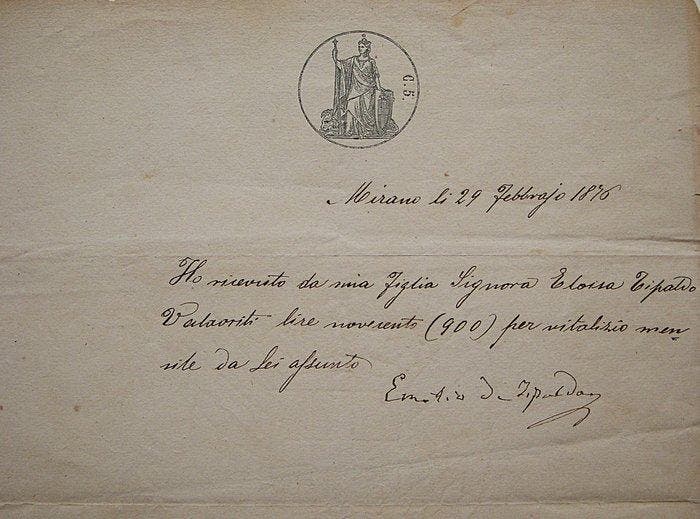 C. 5.
Mirano li 29 Febbrajo 1876
Ho ricevuto da mia figlia Signora Eloisa Tipaldo
Valaoriti lire novecento (900) per vitalizio men
sile da lei assunto
Emilio De Tipaldo